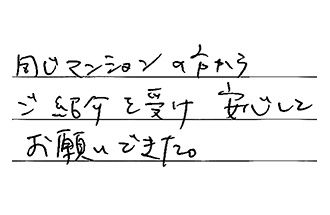 同じマンションの方から
ご紹介を受け 安心して
お願いできた。